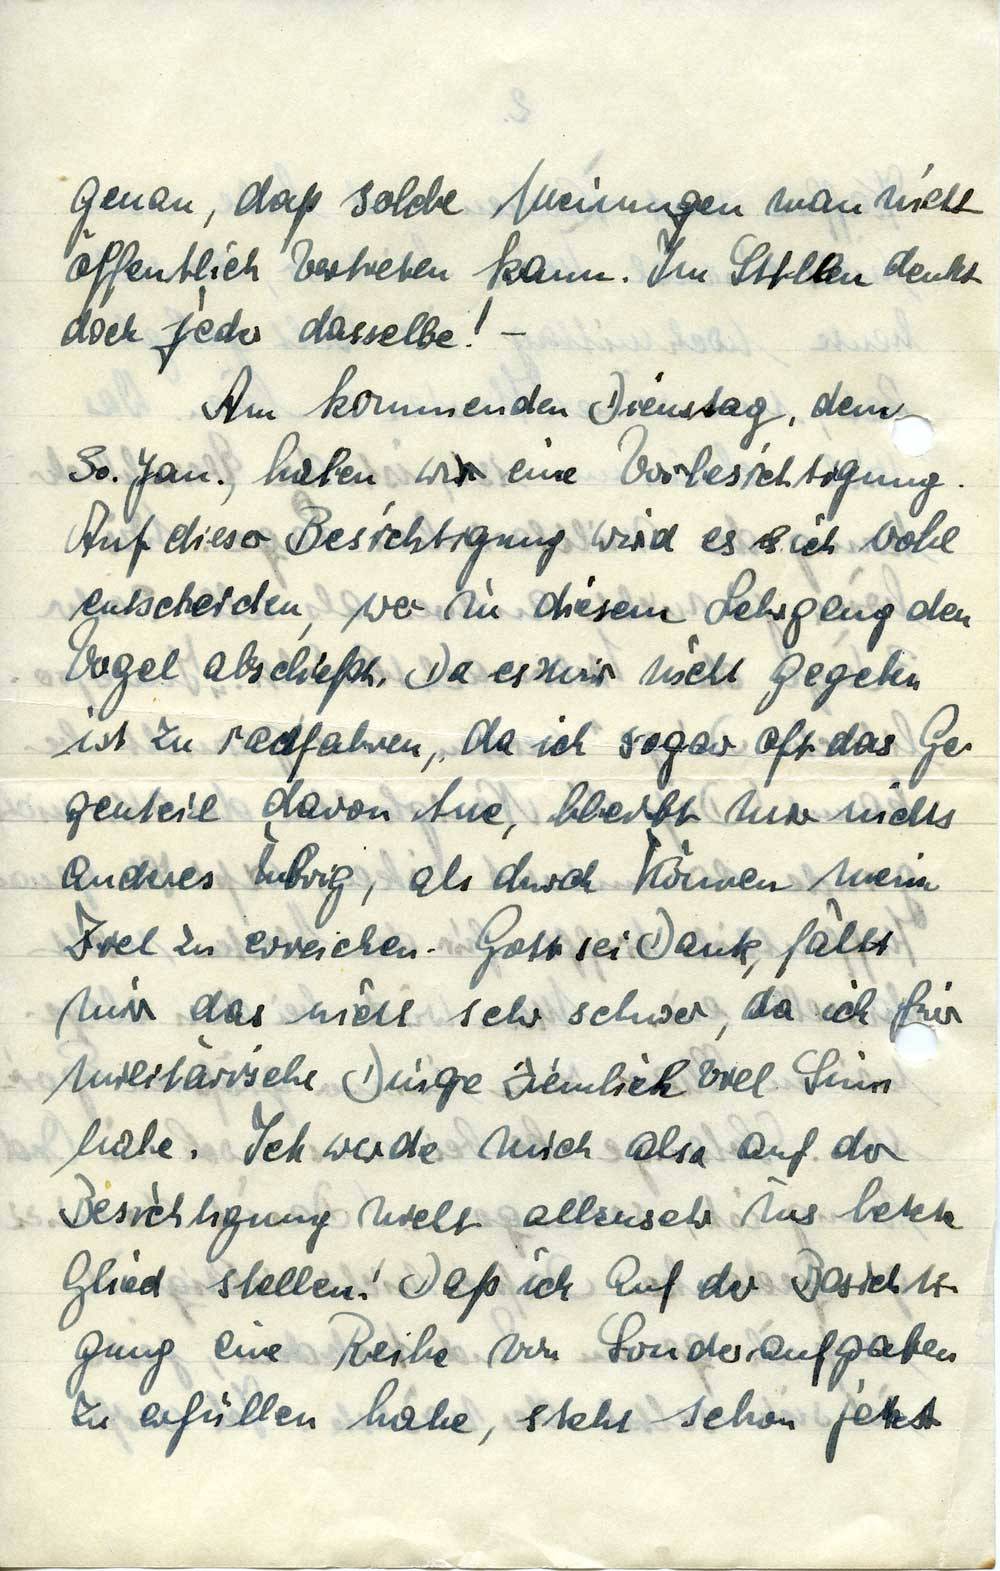 genau, daß solche Meinungen man nicht
öffentlich vertreten kann. Im Stillen denkt
doch jeder dasselbe! –
Am kommenden Dienstag, dem
30. Jan., haben wir eine Vorbesichtigung.
Auf dieser Besichtigung wird es sich wohl
entscheiden, wer in diesem Lehrgang den
Vogel abschießt. Da es mir nicht gegeben
ist zu radfahren, da ich sogar oft das Ge-
genteil davon tue, bleibt mir nichts
anderes übrig, als durch Können mein
Ziel zu erreichen. Gott sei Dank, fällt
mir das nicht sehr schwer, da ich für
militärische Dinge ziemlich viel Sinn
habe. Ich werde mich also auf der
Besichtigung nicht allzusehr ins letzte
Glied stellen! Daß ich auf der Besichti-
gung eine Reihe von Sonderaufgaben
zu erfüllen habe, steht schon jetzt